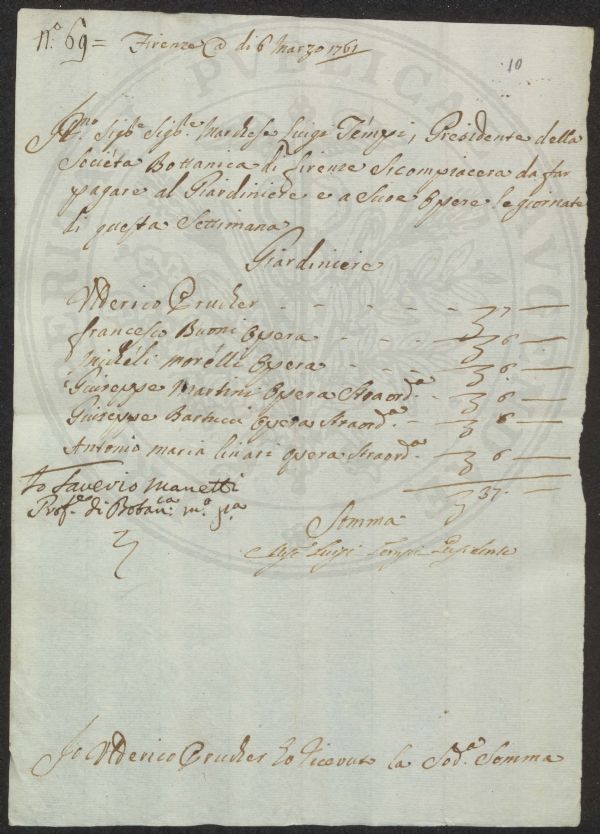 n.º 69 = Firenze @ di 6 Marzo 1761
10
Ill.mo Sig.re Sig.re Marchese Luigi Témpi, Presidente della
Societa Bottanica di firenze Si compiacera da far
pagare al Giardiniere e a Suoe Opere le giornate
di questa Settimana
Giardiniere
Ulderico Prucher - - - - - - 7 —
francesco Buoni Opera - - - 6 —
Michéli morélli Opera - - - 6 —
Giuseppe Martini Opera Straord.a - 6 —
Giuseppe Bartucci Opera Straord.a - 6 —
Antonio maria linari opera Straord.a - 6 —
37 —
Io Saverio Manetti
Prof.e di Botan.ca m.º p.a
Somma
Luigi Tempi Presidente
Io Ulderico Prucher ho Ricevuto la Sod.a Somma